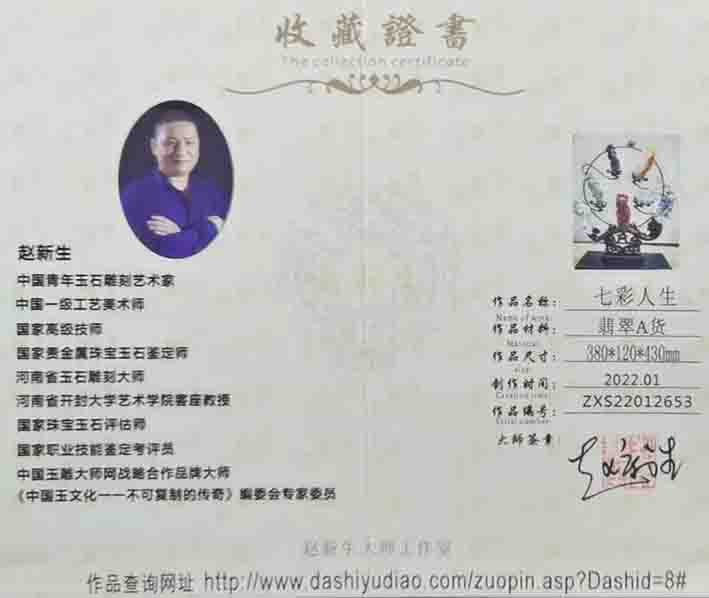 收藏證書
The collection certificate
赵新生
中国青年玉石雕刻艺术家
中国一级工艺美术师
国家高级技师
国家贵金属珠宝玉石鉴定师
河南省玉石雕刻大师
河南省开封大学艺术学院客座教授
国家珠宝玉石评估师
国家职业技能鉴定考评员
中国玉雕大师网战略合作品牌大师
《中国玉文化一一不可复制的传奇》编委会专家委员
作品名称： 七彩人生
Name of work:
作品材料： 翡翠A货
Material:
作品尺寸： 380*120*430mm
size:
制作时间： 2022.01
Creation time:
作品编号： ZXS22012653
Serial number:
大师签章：
赵新生
赵新生大师工作室
作品查询网址 http://www.dashiyudiao.com/zuopin.asp?Dashid=8#